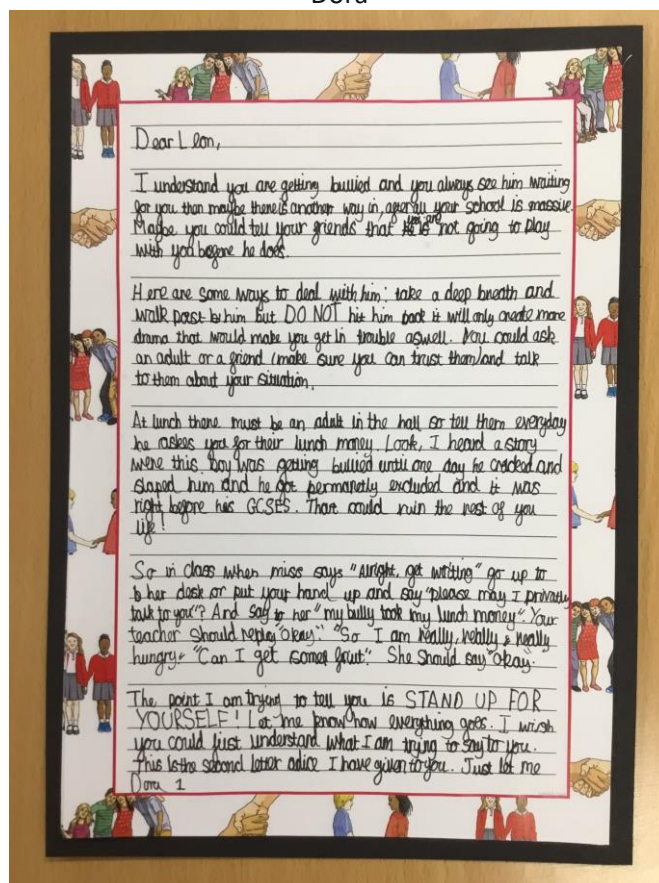 Dora
Dear Leon,
I understand you are getting bullied and you always see him waiting
for you then maybe there is another way in, after all your school is massive.
Maybe you could tell your friends that you are not going to play
with you before he does.
Here are some ways to deal with him: take a deep breath and
walk past by him but DO NOT hit him back it will only create more
drama that would make you get in trouble aswell. You could ask
an adult or a friend (make sure you can trust them) and talk
to them about your situation.
At lunch there must be an adult in the hall so tell them everyday
he askes you for their lunch money. Look, I heard a story
were this boy was getting bullied until one day he cracked and
slaped him and he got permanetly excluded and it was
right before his GCSES. That could ruin the rest of you
life!
So in class when miss says "alright, get writing" go up to
to her desk or put your hand up and say "please may I privatly
talk to you"? And say to her "my bully took my lunch money". Your
teacher should replay "okay". "So I am really, really & really
hungry. "Can I get some fruit." She should say "okay.
The point I am trying to tell you is STAND UP FOR
YOURSELF! Let me know how everything goes. I wish
you could just understand what I am trying to say to you.
This is the second letter adice I have given to you. Just let me
Dora 1